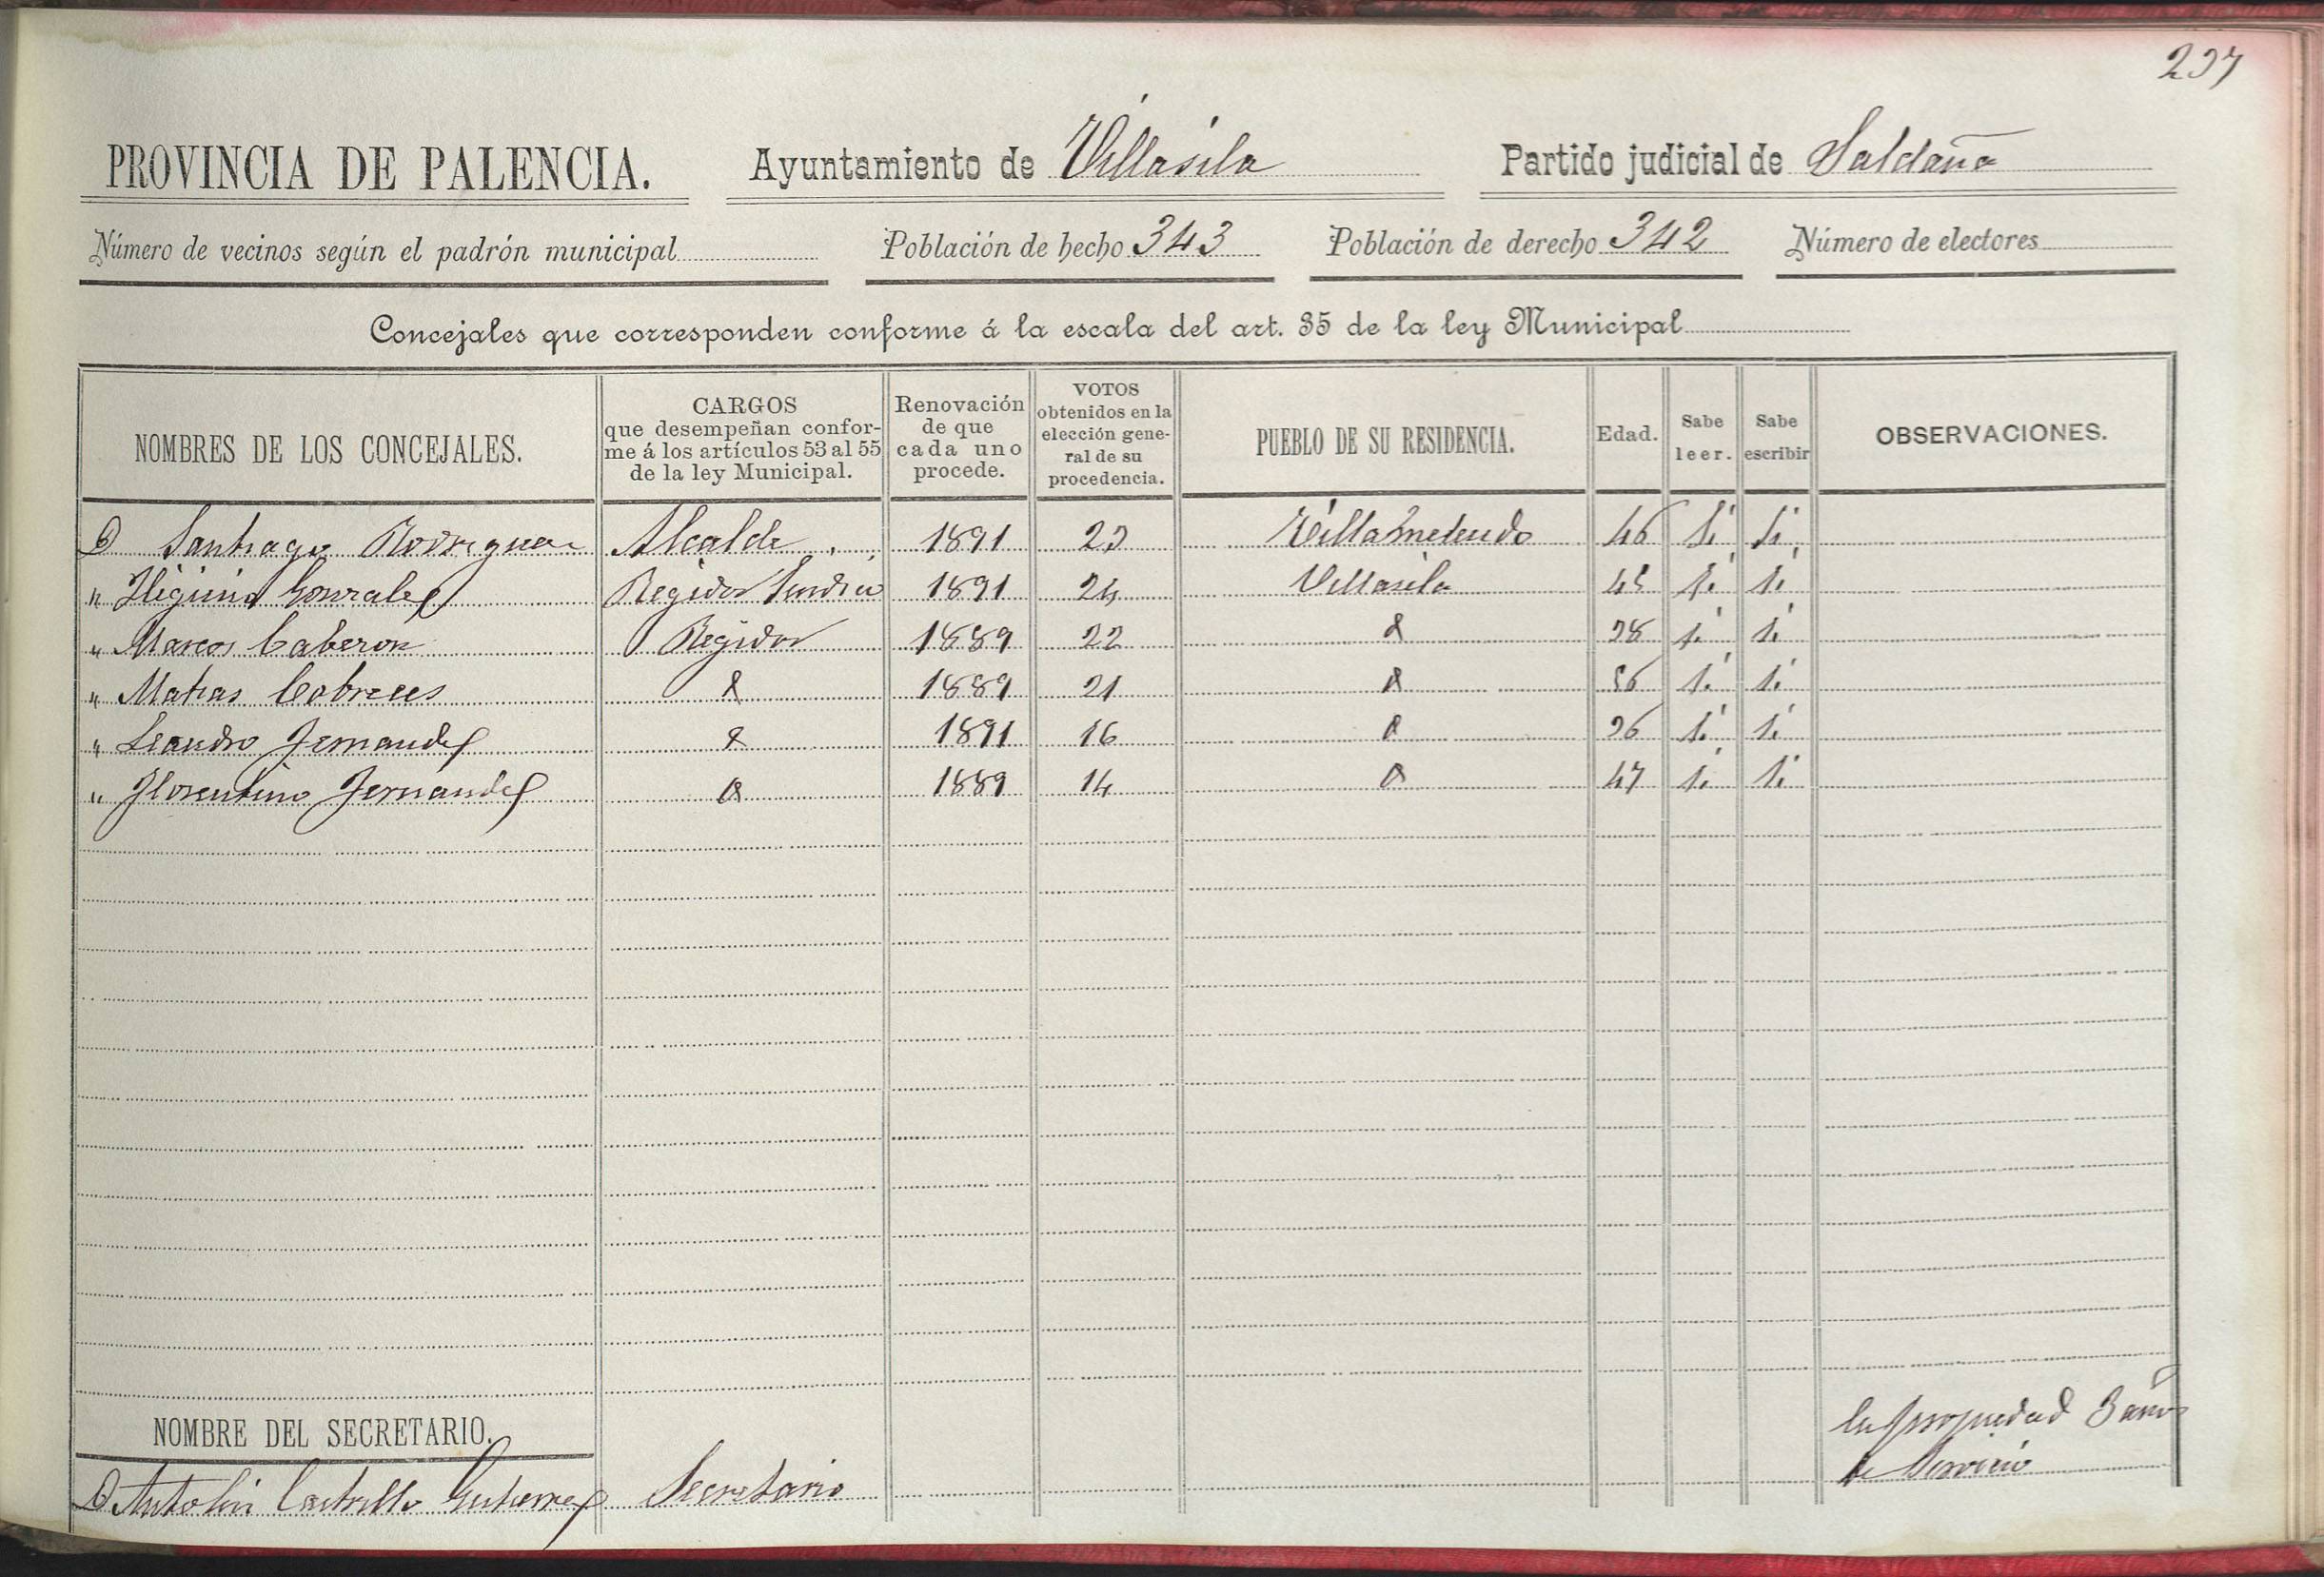 237
PROVINCIA DE PALENCIA. Ayuntamiento de Villasila Partido judicial de Saldaña
Número de vecinos según el padrón municipal Población de hecho 343 Población de derecho 342 Número de electores
Concejales que corresponden conforme á la escala del art. 35 de la ley Municipal
NOMBRES DE LOS CONCEJALES. CARGOS que desempeñan conforme á los artículos 53 al 55 de la ley Municipal. Renovación de que cada uno procede. VOTOS obtenidos en la elección general de su procedencia. PUEBLO DE SU RESIDENCIA. Edad. Sabe leer. Sabe escribir OBSERVACIONES.
D Santiago Rodriguez Alcalde 1891 23 Villamelendo 46 Si Si
" Higinio Gonzalez Regidor Sindico 1891 24 Villasila 45 Si Si
" Marcos Caberon Regidor 1889 22 d 38 Si Si
" Matias Cobreces d 1889 21 d 56 Si Si
" Leandro Fernandez d 1891 16 d 36 Si Si
" Florentino Fernandez d 1889 14 d 47 Si Si
NOMBRE DEL SECRETARIO.
D Antolin Castrillo Gutierrez Secretario En propiedad 3 años de Servicio